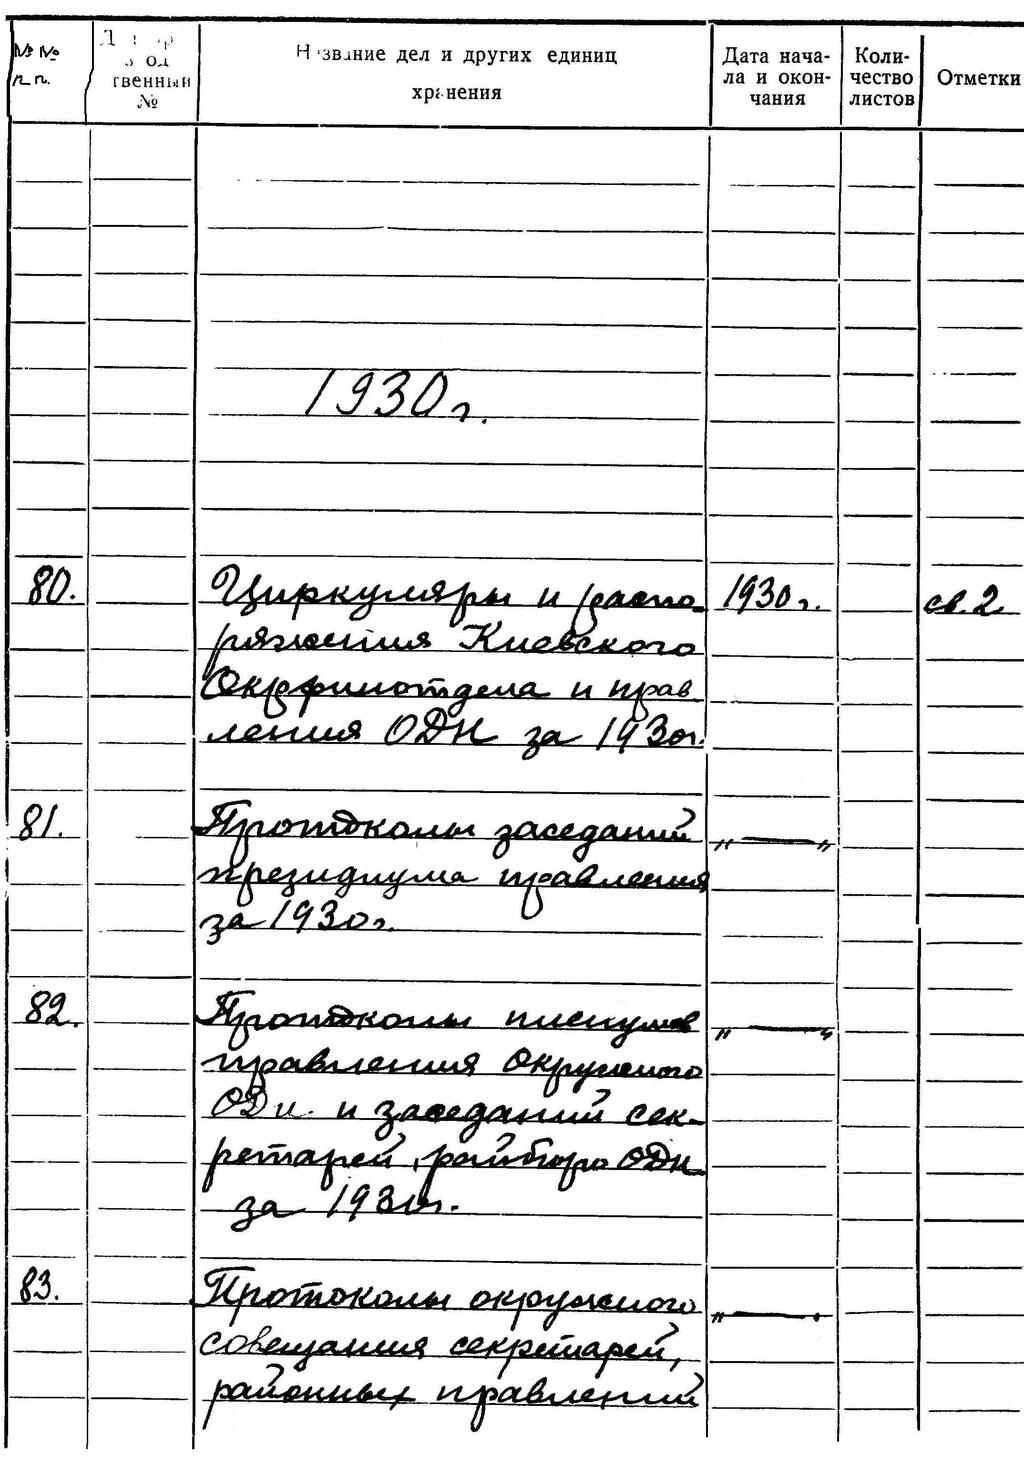 № №
п п.
твенный
№
Название дел и других единиц
хранения
Дата нача-
ла и окон-
чания
Коли-
чество
листов
Отметки
1930 г.
80.
Циркуляры и распо-
ряжения Киевского
Окрфинотдела и прав
ления ОДН за 1930г.
1930 г.
св. 2
81.
Протоколы заседаний
президиума правления
за 1930г.
„ — „
82.
Протоколы пленумов
правления Окружного
ОДН. и заседаний сек-
ретарей, райбюро ОДН
за 1930г.
„ — „
83.
Протоколы окружного
совещания секретарей,
районных правлений
„ — „